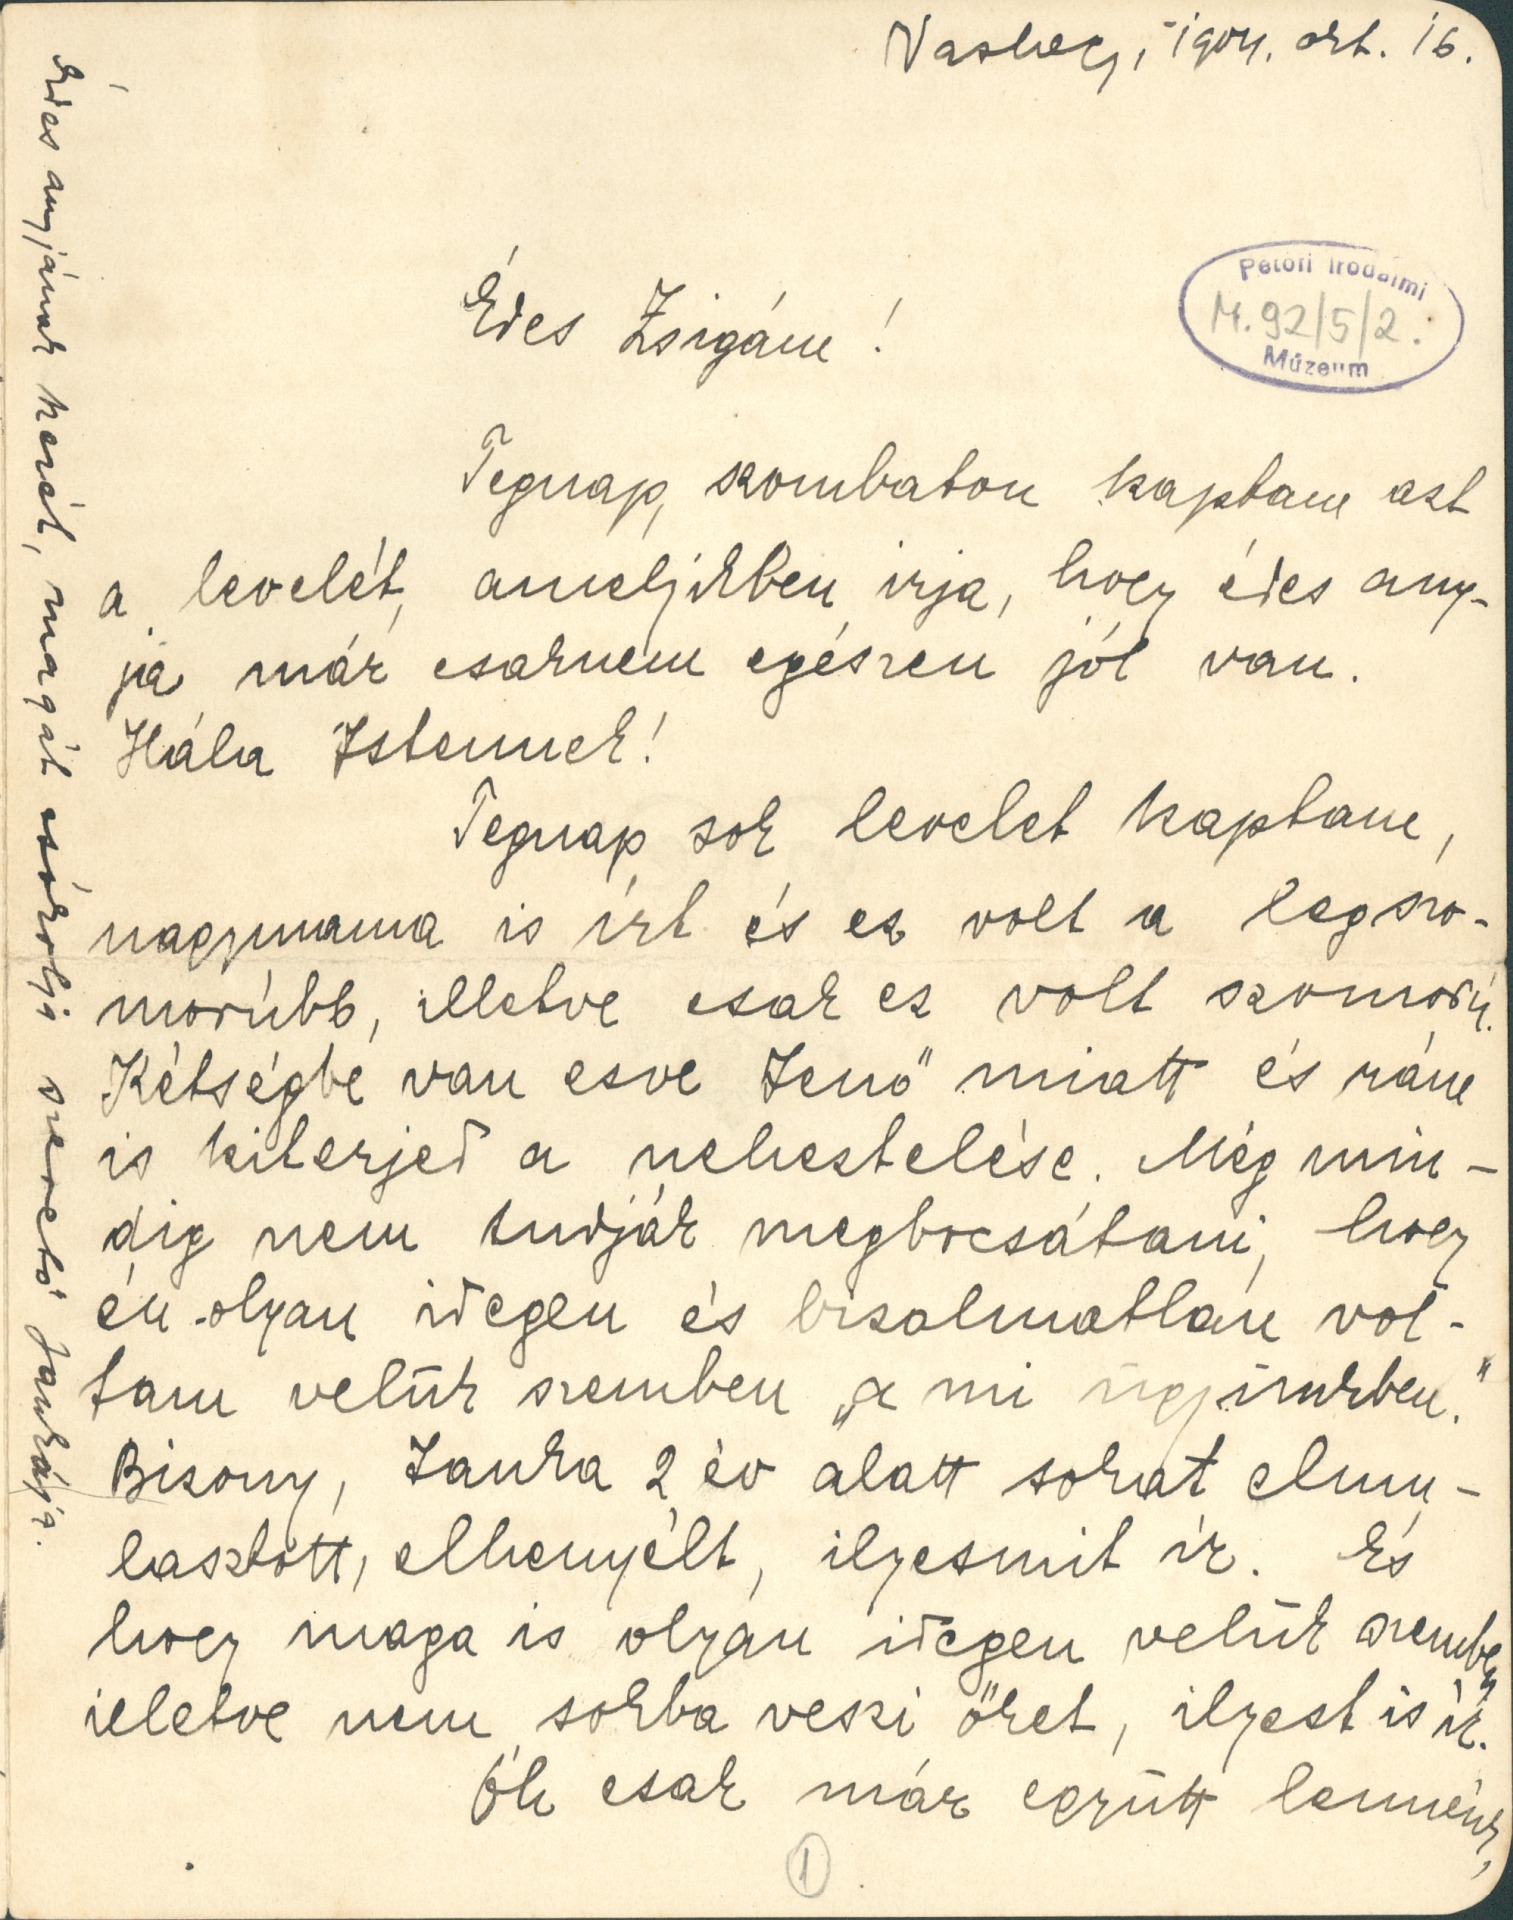 Vashegy, 1904. okt. 16.
Petőfi Irodalmi
M. 92/5/2.
Múzeum
Édes Zsigám!
Tegnap, szombaton kaptam azt
a levelét, ameljikben irja, hogy édes any-
ja már csaknem egészen jól van.
Hála Istennek!
Tegnap sok levelet kaptam,
nagymama is írt és ez volt a legszo-
morúbb, illetve csak ez volt szomorú.
Kétségbe van esve Jenő miatt és rám
is kiterjed a neheztelése. Még min-
dig nem tudják megbocsátani, hogy
én olyan idegen és bizalmatlan vol-
tam velük szemben „a mi ügyünkben."
Bizony, Janka 2 év alatt sokat elmu-
lasztott, elhenyélt, ilyesmit ír. És
hogy maga is olyan idegen velük szemben
illetve nem sokba veszi őket, ilyest is ír.
Óh csak már együtt lennénk,
1
Édes anyjának kezét, magát csókolja szerető Jankája.